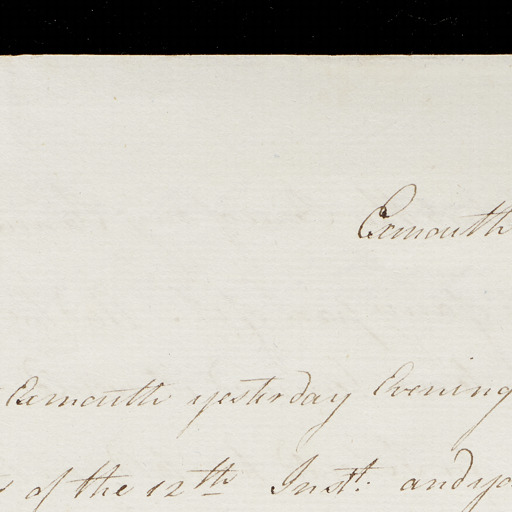 Exmouth
Exmouth yesterday Evening
of the 12th Inst: and yo